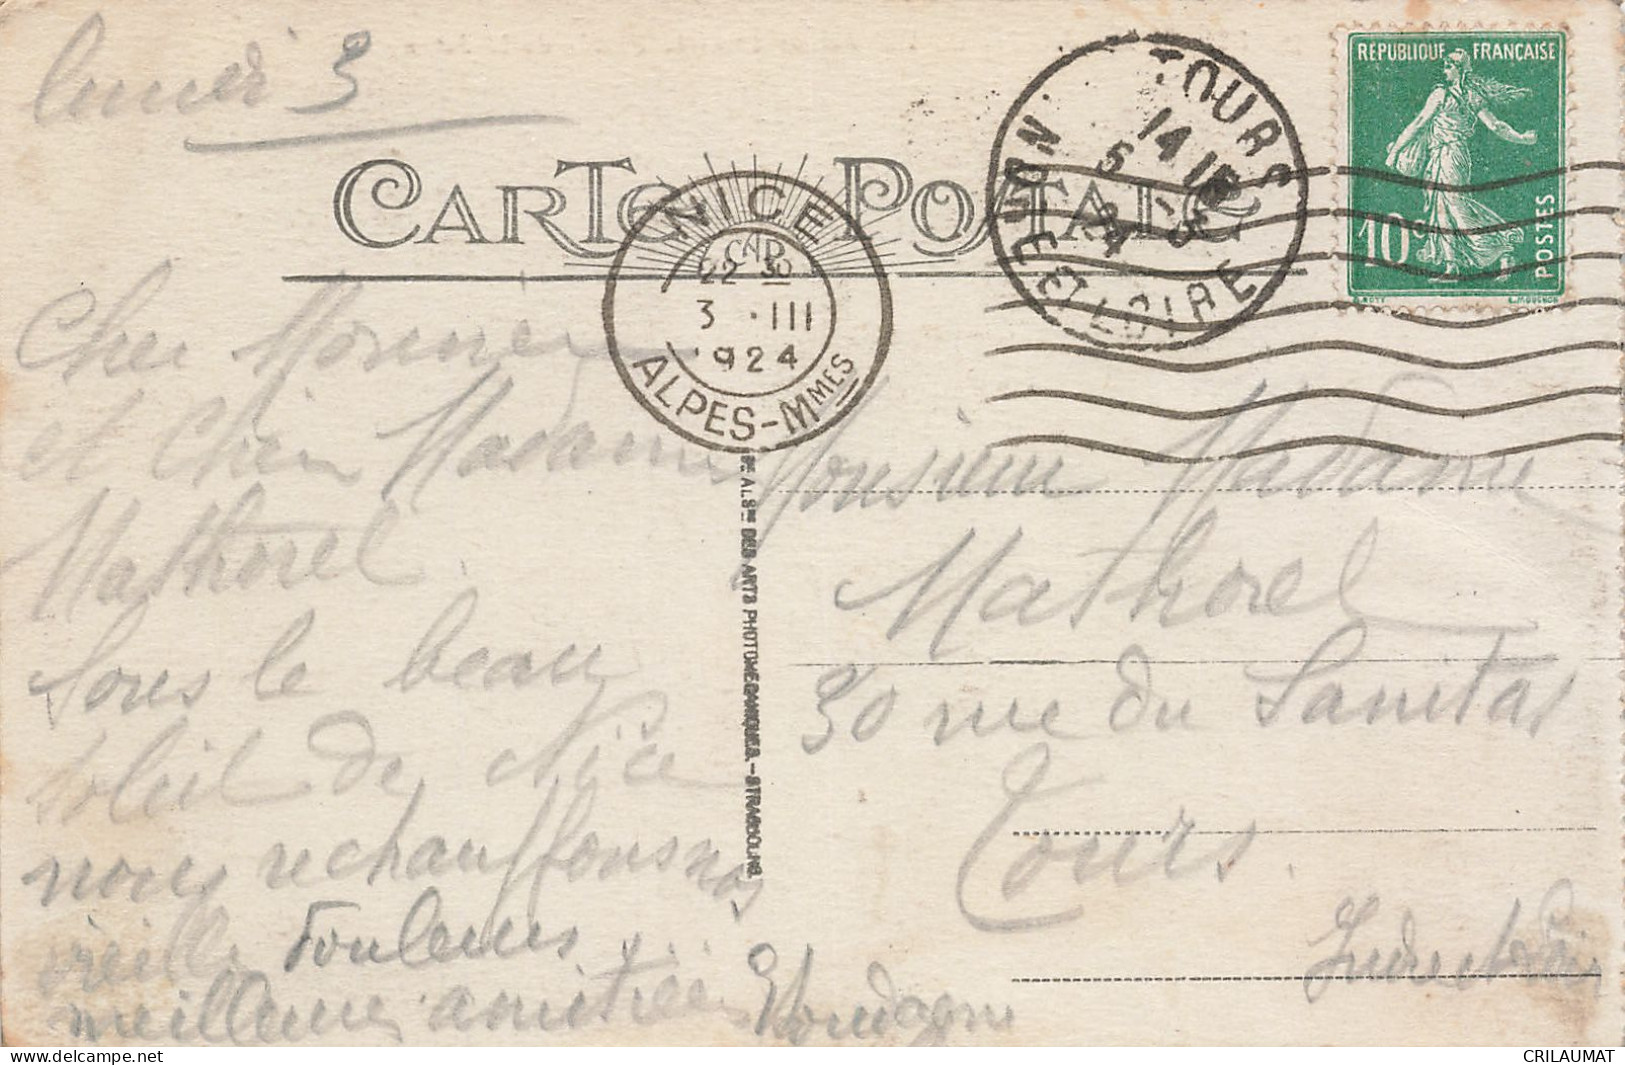 lundi 3
CARTE POSTALE
RÉPUBLIQUE FRANÇAISE
10c
POSTES
TOURS
14 15
5 - 3
24
INDRE ET LOIRE
NICE
GARE
22 30
3 · III
1924
ALPES-MMES
Cher Monsieur
et chère Madame
Mathorel
Sous le beau
soleil de Nice
nous rechauffons nos
vieilles douleurs
meilleures amitiés
Sté ALSNE DES ARTS PHOTOMÉCANIQUES. - STRASBOURG.
Monsieur Madame
Mathorel
30 rue du Sanitas
Tours.
Indre et Loire
CRILAUMAT